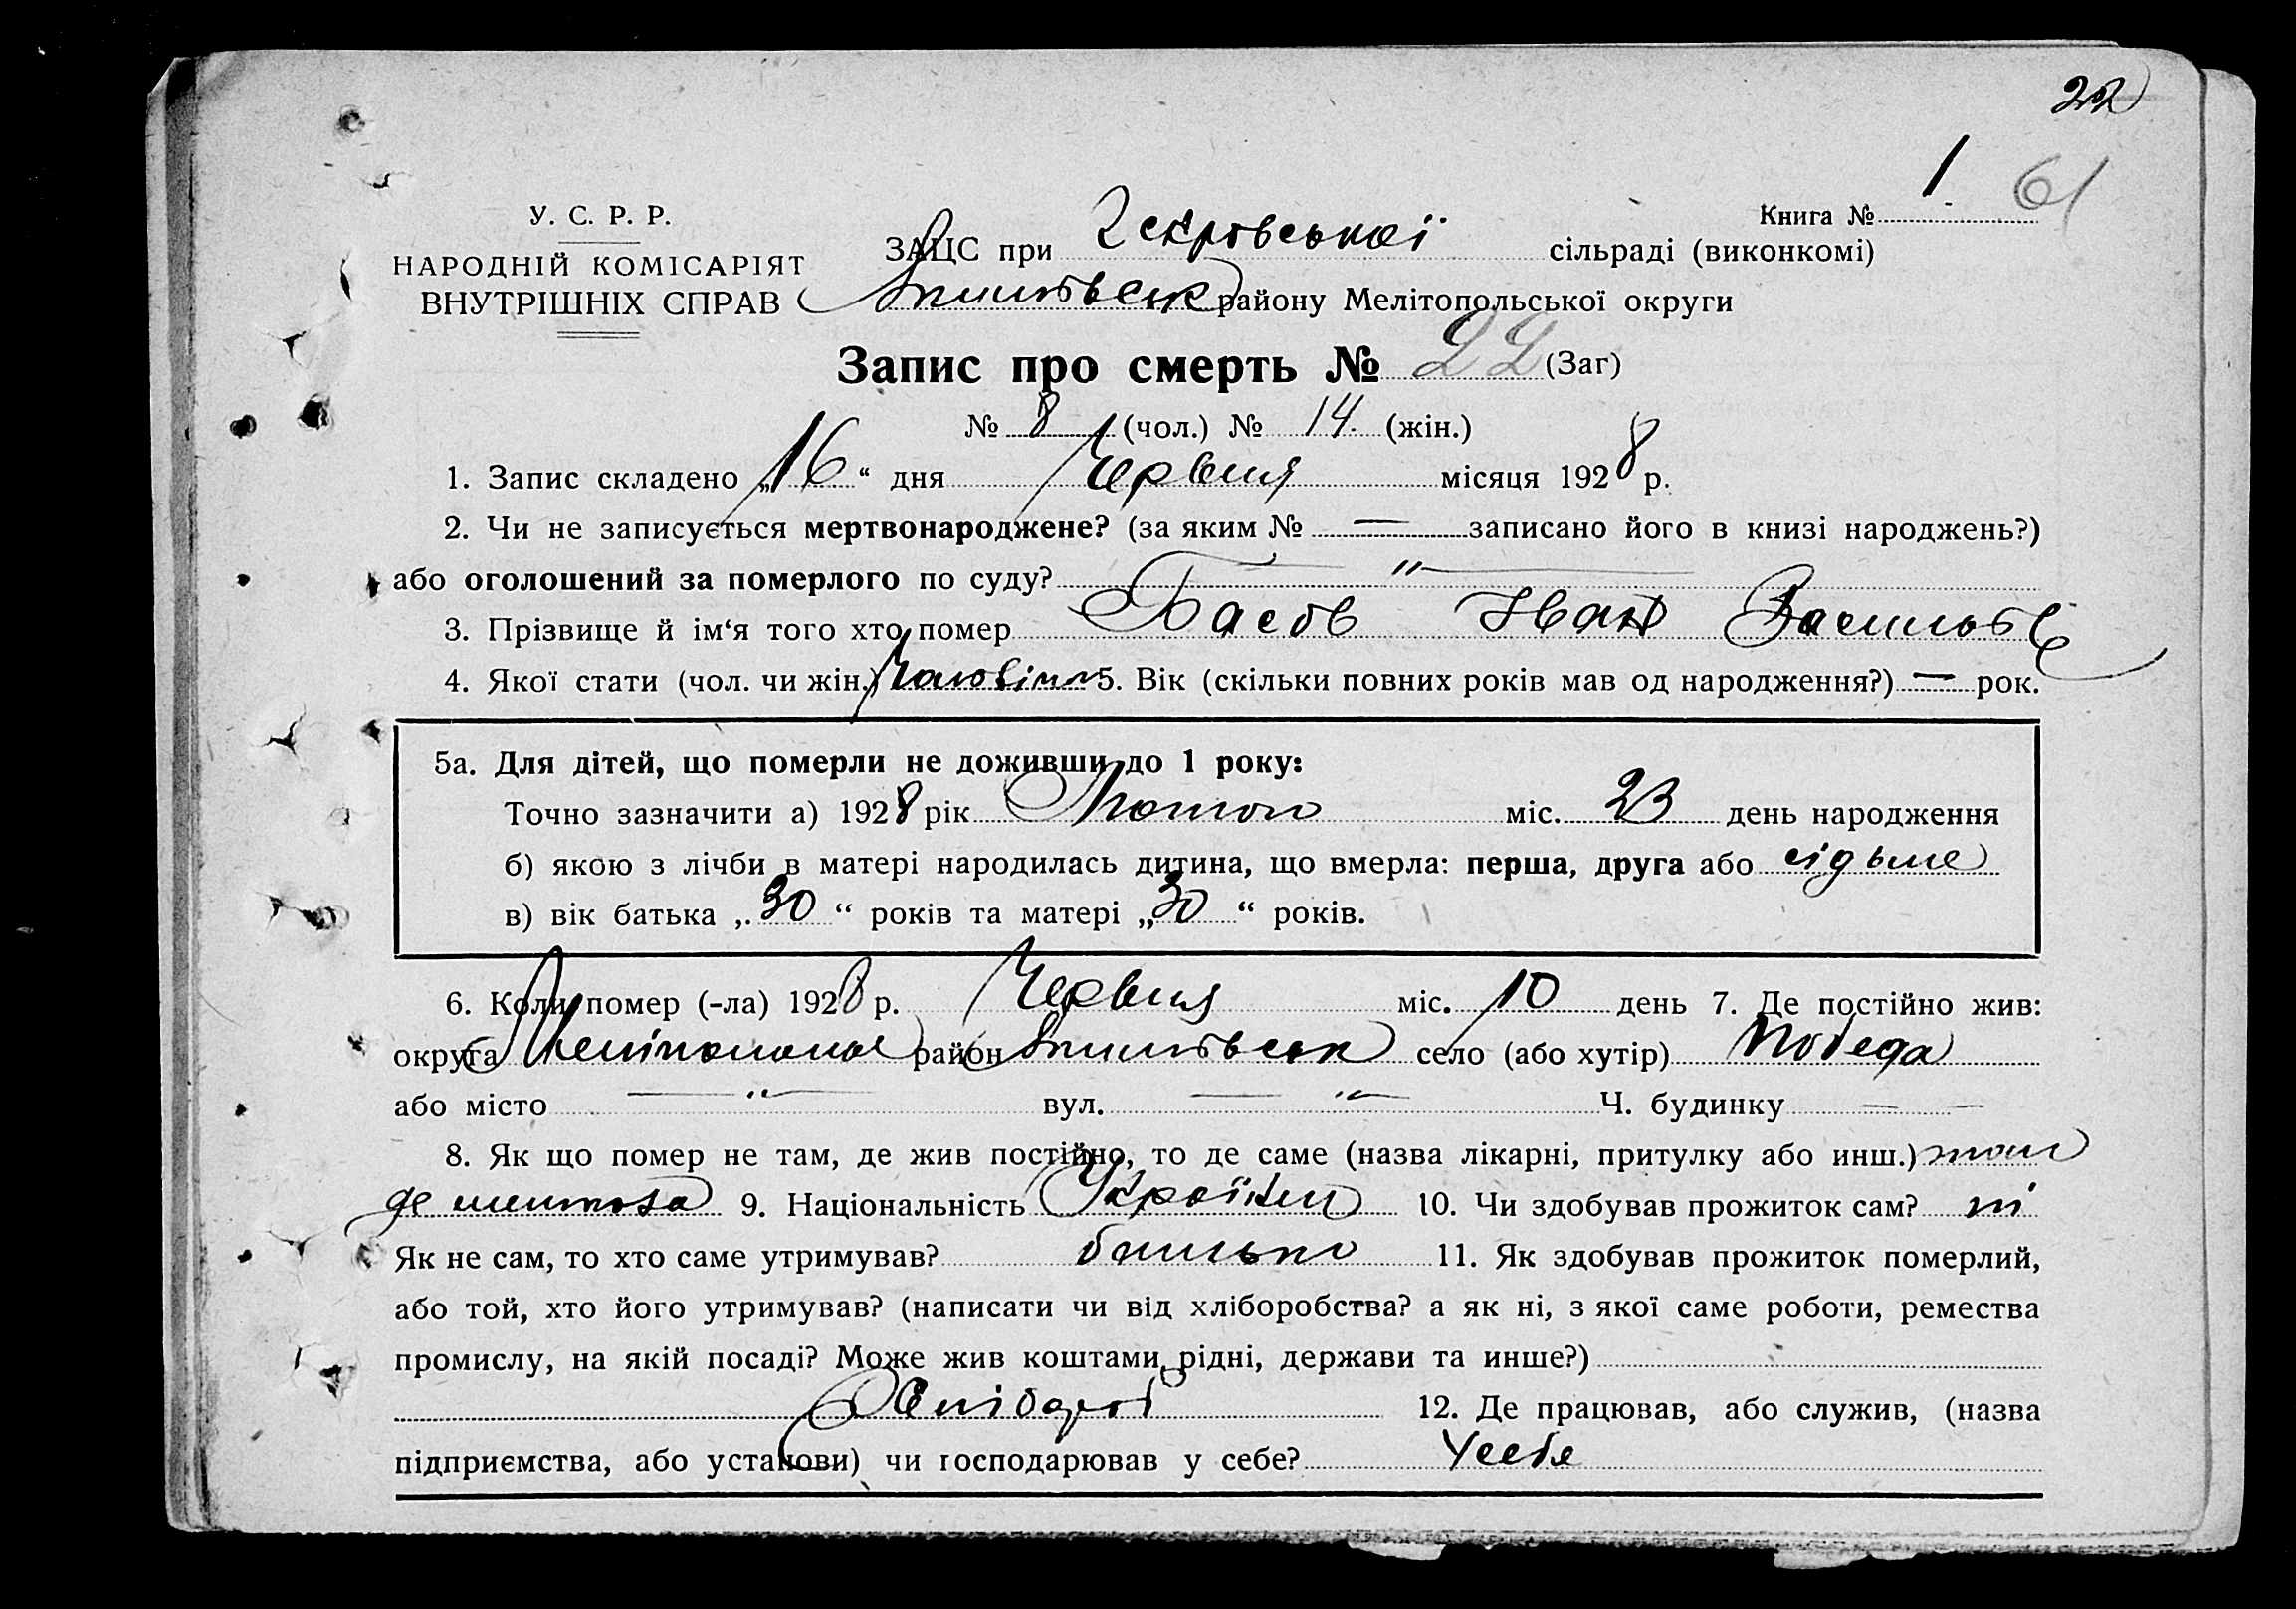 22
Книга № 1 61
У. С. Р. Р.
НАРОДНІЙ КОМІСАРІЯТ
ВНУТРІШНІХ СПРАВ
ЗАЦС при сільраді (виконкомі)
району Мелітопольської округи
Запис про смерть № 22 (Заг)
№ 8 (чол.) № 14. (жін.)
1. Запис складено „16“ дня Червня місяця 1928 р.
2. Чи не записується мертвонароджене? (за яким № — записано його в книзі народжень?)
або оголошений за померлого по суду? — " —
3. Прізвище й ім‘я того хто помер Басов Іван Васильов
4. Якої стати (чол. чи жін.) 5. Вік (скільки повних років мав од народження?) — рок.
5а. Для дітей, що померли не доживши до 1 року:
Точно зазначити а) 1928 рік Лютого міс. 23 день народження
б) якою з лічби в матері народилась дитина, що вмерла: перша, друга або сідьме
в) вік батька „30“ років та матері „30“ років.
6. Коли помер (-ла) 1928 р. Червня міс. 10 день 7. Де постійно жив:
округа район село (або хутір) Победа
або місто — " — вул. — " — Ч. будинку — —
8. Як що помер не там, де жив постійно, то де саме (назва лікарні, притулку або инш.) там
де 9. Національність Україн 10. Чи здобував прожиток сам? ні
Як не сам, то хто саме утримував? батько 11. Як здобував прожиток померлий,
або той, хто його утримував? (написати чи від хліборобства? а як ні, з якої саме роботи, ремества
промислу, на якій посаді? Може жив коштами рідні, держави та инше?)
12. Де працював, або служив, (назва
підприємства, або установи) чи господарював у себе? У себя